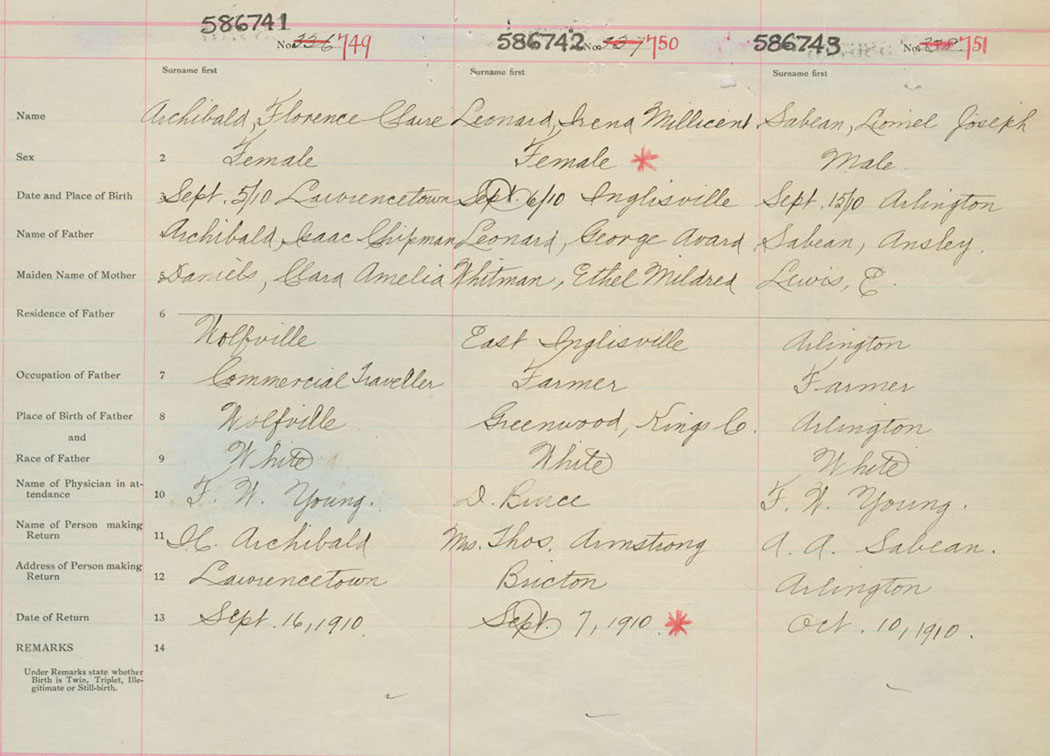 586741 586742 586743
No. 336 749 No. 337 750 No. 338 751
Surname first Surname first Surname first
Name Archibald, Florence Claire Leonard, Irena Millicent Sabean, Lionel Joseph
Sex 2 Female Female * Male
Date and Place of Birth 3 Sept. 5/10 Lawrencetown Sept. 6/10 Inglisville Sept. 15/10 Arlington
Name of Father Archibald, Isaac Chipman Leonard, George Avard Sabean, Ansley.
Maiden Name of Mother 5 Daniels, Clara Amelia Whitman, Ethel Mildred Lewis, E.
Residence of Father 6
Wolfville East Inglisville Arlington
Occupation of Father 7 Commercial Traveller Farmer Farmer
Place of Birth of Father 8 Wolfville Greenwood, Kings Co. Arlington
and
Race of Father 9 White White White
Name of Physician in at-
tendance 10 F. W. Young. D. Bruce F. W. Young.
Name of Person making
Return 11 I. C. Archibald Mrs. Thos. Armstrong A. A. Sabean.
Address of Person making
Return 12 Lawrencetown Bricton Arlington
Date of Return 13 Sept. 16, 1910. Sept. 7, 1910. * Oct. 10, 1910.
REMARKS 14
Under Remarks state whether
Birth is Twin, Triplet, Ille-
gitimate or Still-birth.